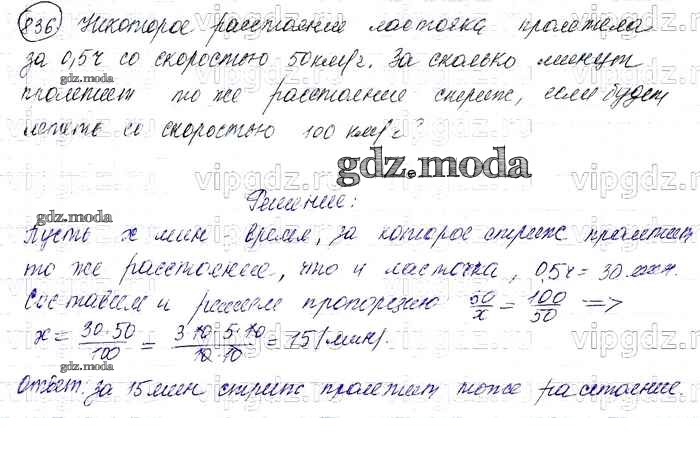 836 Некоторое расстояние ласточка пролетела
за 0,5ч со скоростью 50км/ч. За сколько минут
gdz.moda
пролетит то же расстояние стриж, если будет
лететь со скоростью 100 км/ч?
gdz.moda
Решение:
gdz.moda
Пусть x мин - время, за которое стриж пролетит
то же расстояние, что и ласточка, 0,5ч = 30 мин.
Составим и решим пропорцию 50/x = 100/50 =>
x = 30·50/100 = 3·10·5·10/10·10 = 15(мин).
gdz.moda
Ответ: за 15 мин стриж пролетит то же расстояние.
vipgdz.ru